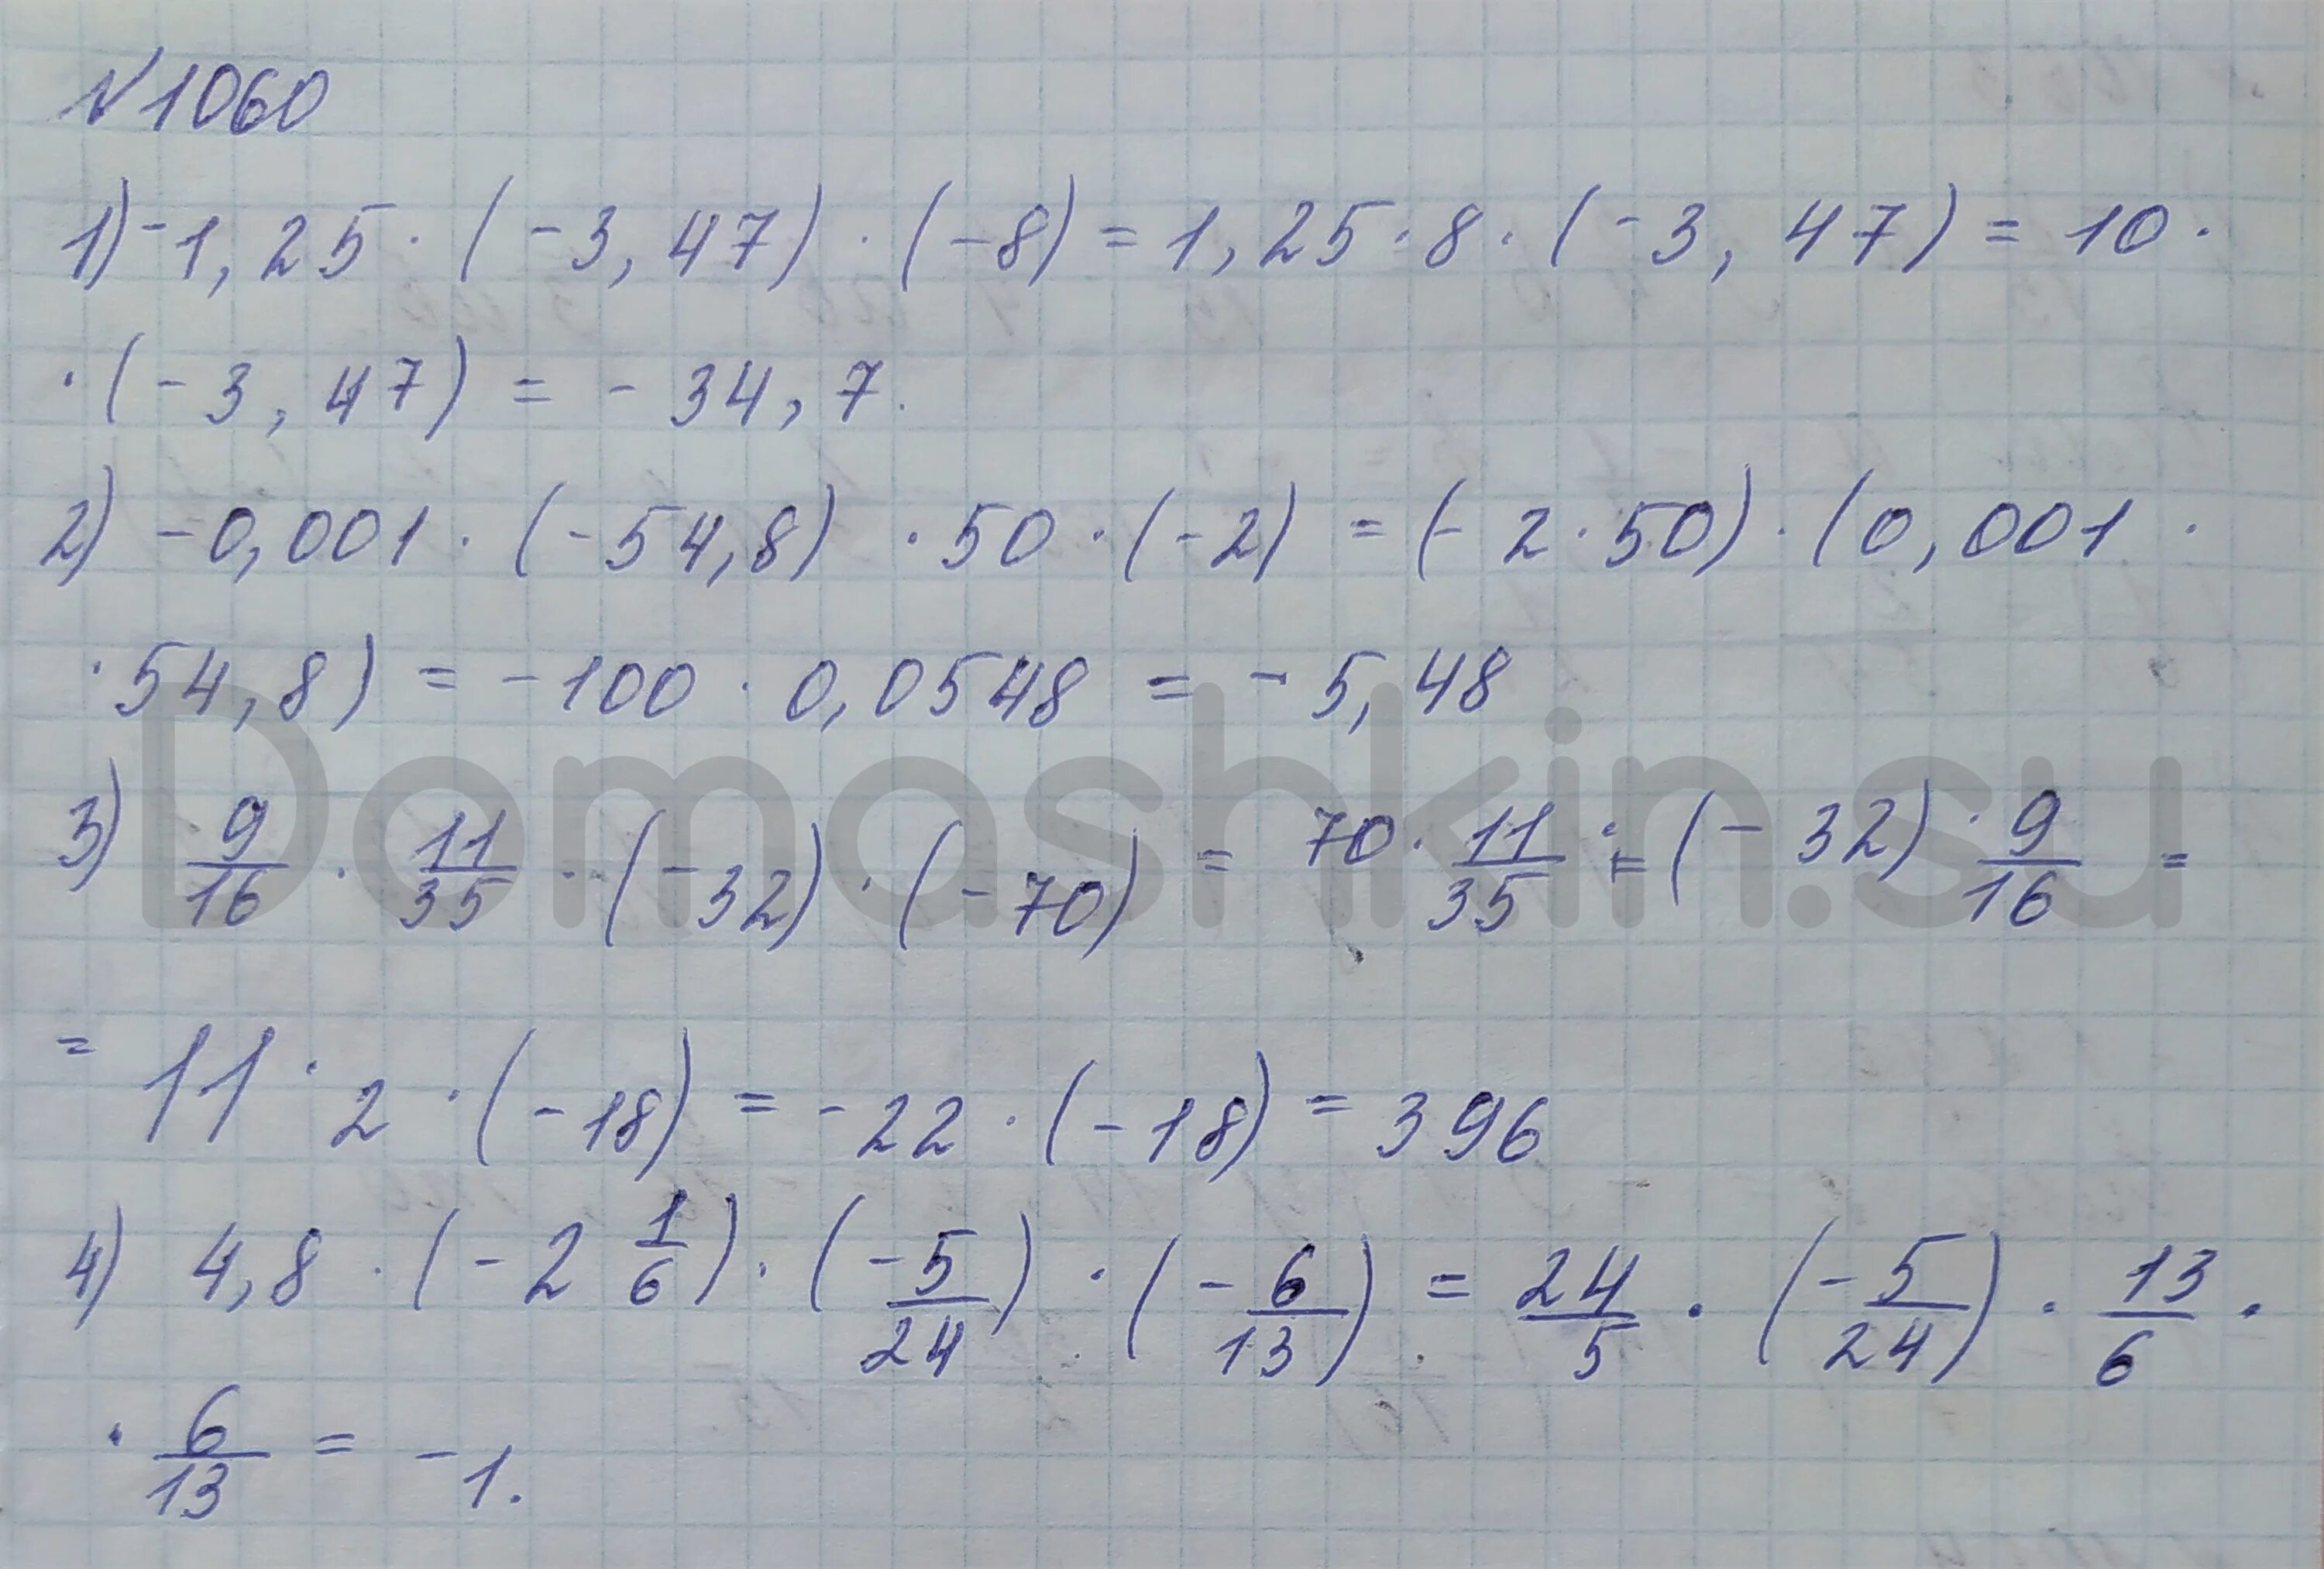 №1060
1) -1,25 · (-3,47) · (-8) = 1,25 · 8 · (-3,47) = 10 ·
· (-3,47) = -34,7.
2) -0,001 · (-54,8) · 50 · (-2) = (-2 · 50) · (0,001 ·
· 54,8) = -100 · 0,0548 = -5,48
3) 9/16 · 11/35 · (-32) · (-70) = 70 · 11/35 · = (-32) · 9/16 =
= 11 · 2 · (-18) = -22 · (-18) = 396
4) 4,8 · (-2 1/6) · (-5/24) · (-6/13) = 24/5 · (-5/24) · 13/6 ·
· 6/13 = -1.
Domashkin.su